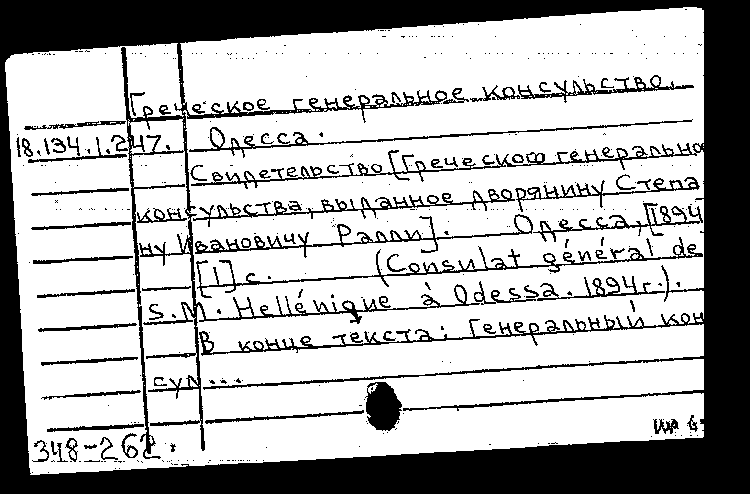 Греческое генеральное консульство.
18.134.1.247. Одесса.
Свидетельство [Греческого генерально
консульства, выданное дворянину Степа
ну Ивановичу Ралли]. Одесса, [1894
[1] с. (Consulat général de
S.M. Hellénique à Odessa. 1894г.).
В конце текста: Генеральный кон
сул...
348-262.